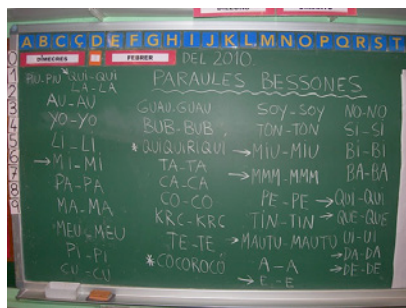 A B C Ç D E F G H I J K L M N O P Q R S T
0 1 2 3 4 5 6 7 8 9
DIMECRES FEBRER DEL 2010.
PARAULES BESSONES
PIU-PIU QUI-QUI
LA-LA
AU-AU
YO-YO
LI-LI
→MI-MI
PA-PA
MA-MA
MEU-MEU
PI-PI
CU-CÚ
GUAU-GUAU
BUB-BUB
*QUIQUIRIQUI
TA-TA
CA-CA
CO-CO
KRC-KRC
TE-TE
*COCOROCÓ
SOY-SOY
TON-TON
→MIU-MIU
→MMM-MMM
PE-PE
TIN-TIN
→MAUTU-MAUTU
A-A
→E-E
NO-NO
SI-SI
BI-BI
BA-BA
→QUI-QUI
→QUE-QUE
UI-UI
→DA-DA
→DE-DE